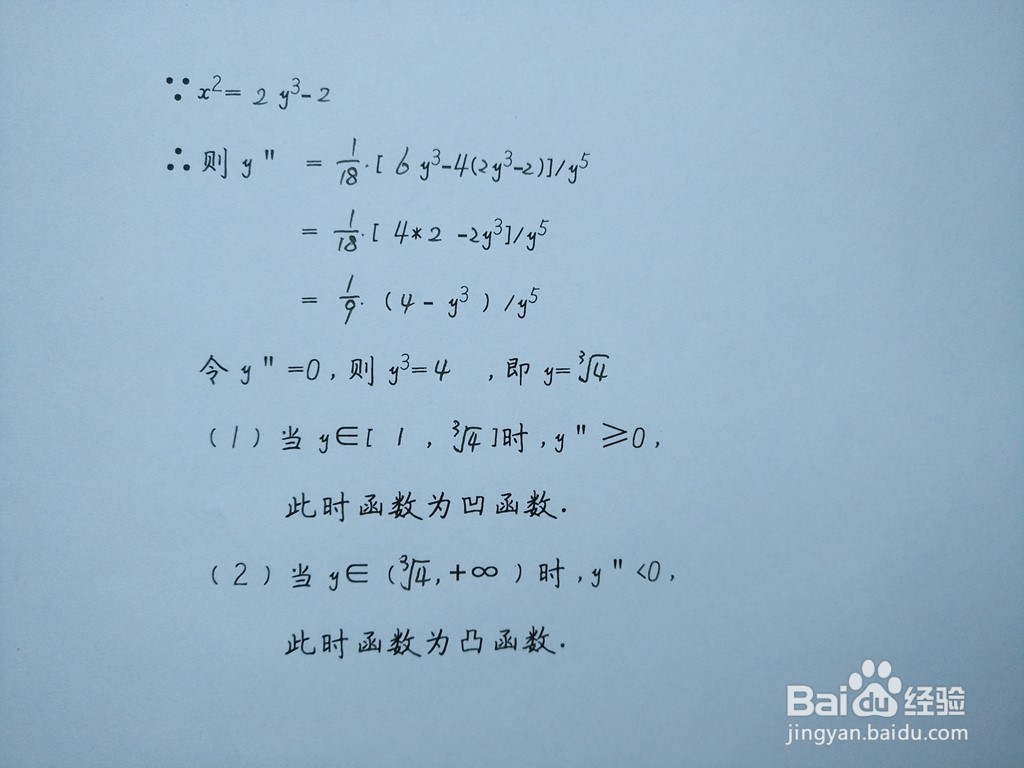 ∵ x²= 2 y³-2
∴ 则 y" = 1/18·[ 6 y³-4(2y³-2)]/y⁵
= 1/18·[ 4*2 -2y³]/y⁵
= 1/9· (4 - y³ ) /y⁵
令 y" =0, 则 y³=4 , 即 y=³√4
(1) 当 y∈[ 1 , ³√4 ]时, y" ≥0,
此时函数为凹函数.
(2) 当 y∈ (³√4, +∞ ) 时, y" <0,
此时函数为凸函数.
Bai du 经验
jingyan.baidu.com